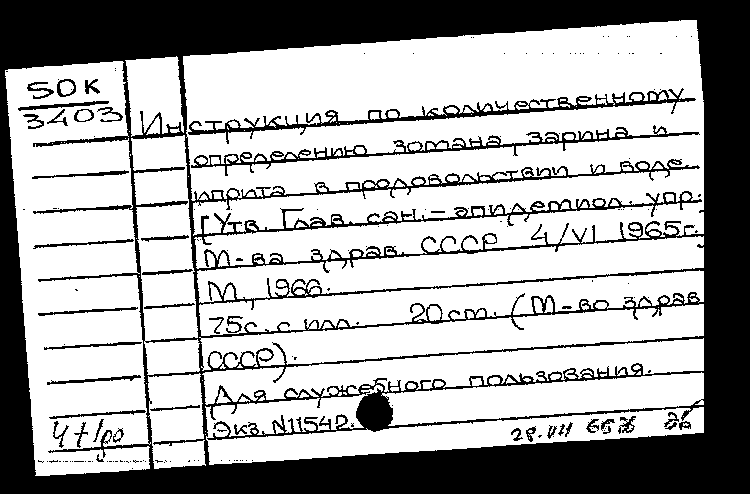 SOK
3403
Инструкция по количественному
определению зомана, зарина и
иприта в продовольствии и воде.
[Утв. Глав. сан.-эпидемиол. упр.
М-ва здрав. СССР 4/VI 1965г.
М., 1966.
75с. с илл. 20см. (М-во здрав
СССР).
Для служебного пользования.
Экз. N11542.
29.VII 66